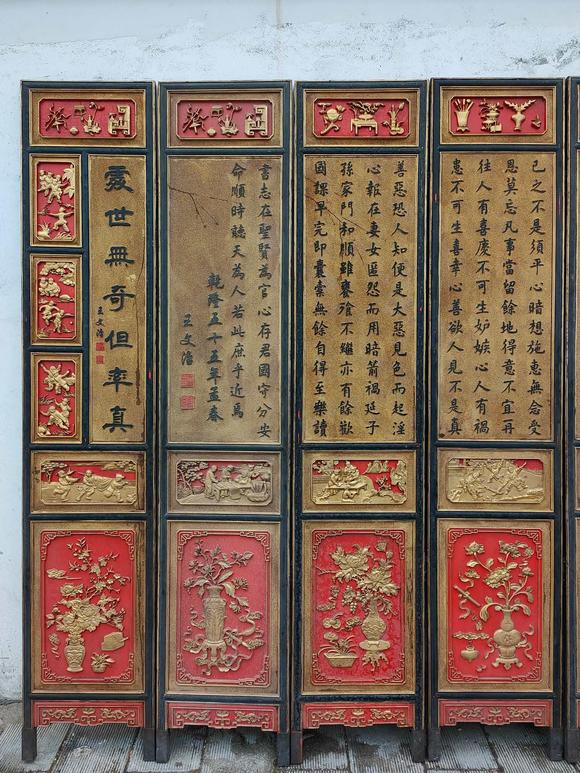 己之不是須平心暗想施惠無念受
恩莫忘凡事當留餘地得意不宜再
往人有喜慶不可生妒嫉心人有禍
患不可生喜幸心善欲人見不是真
善惡恐人知便是大惡見色而起淫
心報在妻女匿怨而用暗箭禍延子
孫家門和順雖饔飧不繼亦有餘歡
國課早完即囊橐無餘自得至樂讀
書志在聖賢為官心存君國守分安
命順時聽天為人若此庶乎近焉
乾隆五十五年孟春
王文治
處世無奇但率真
王文治